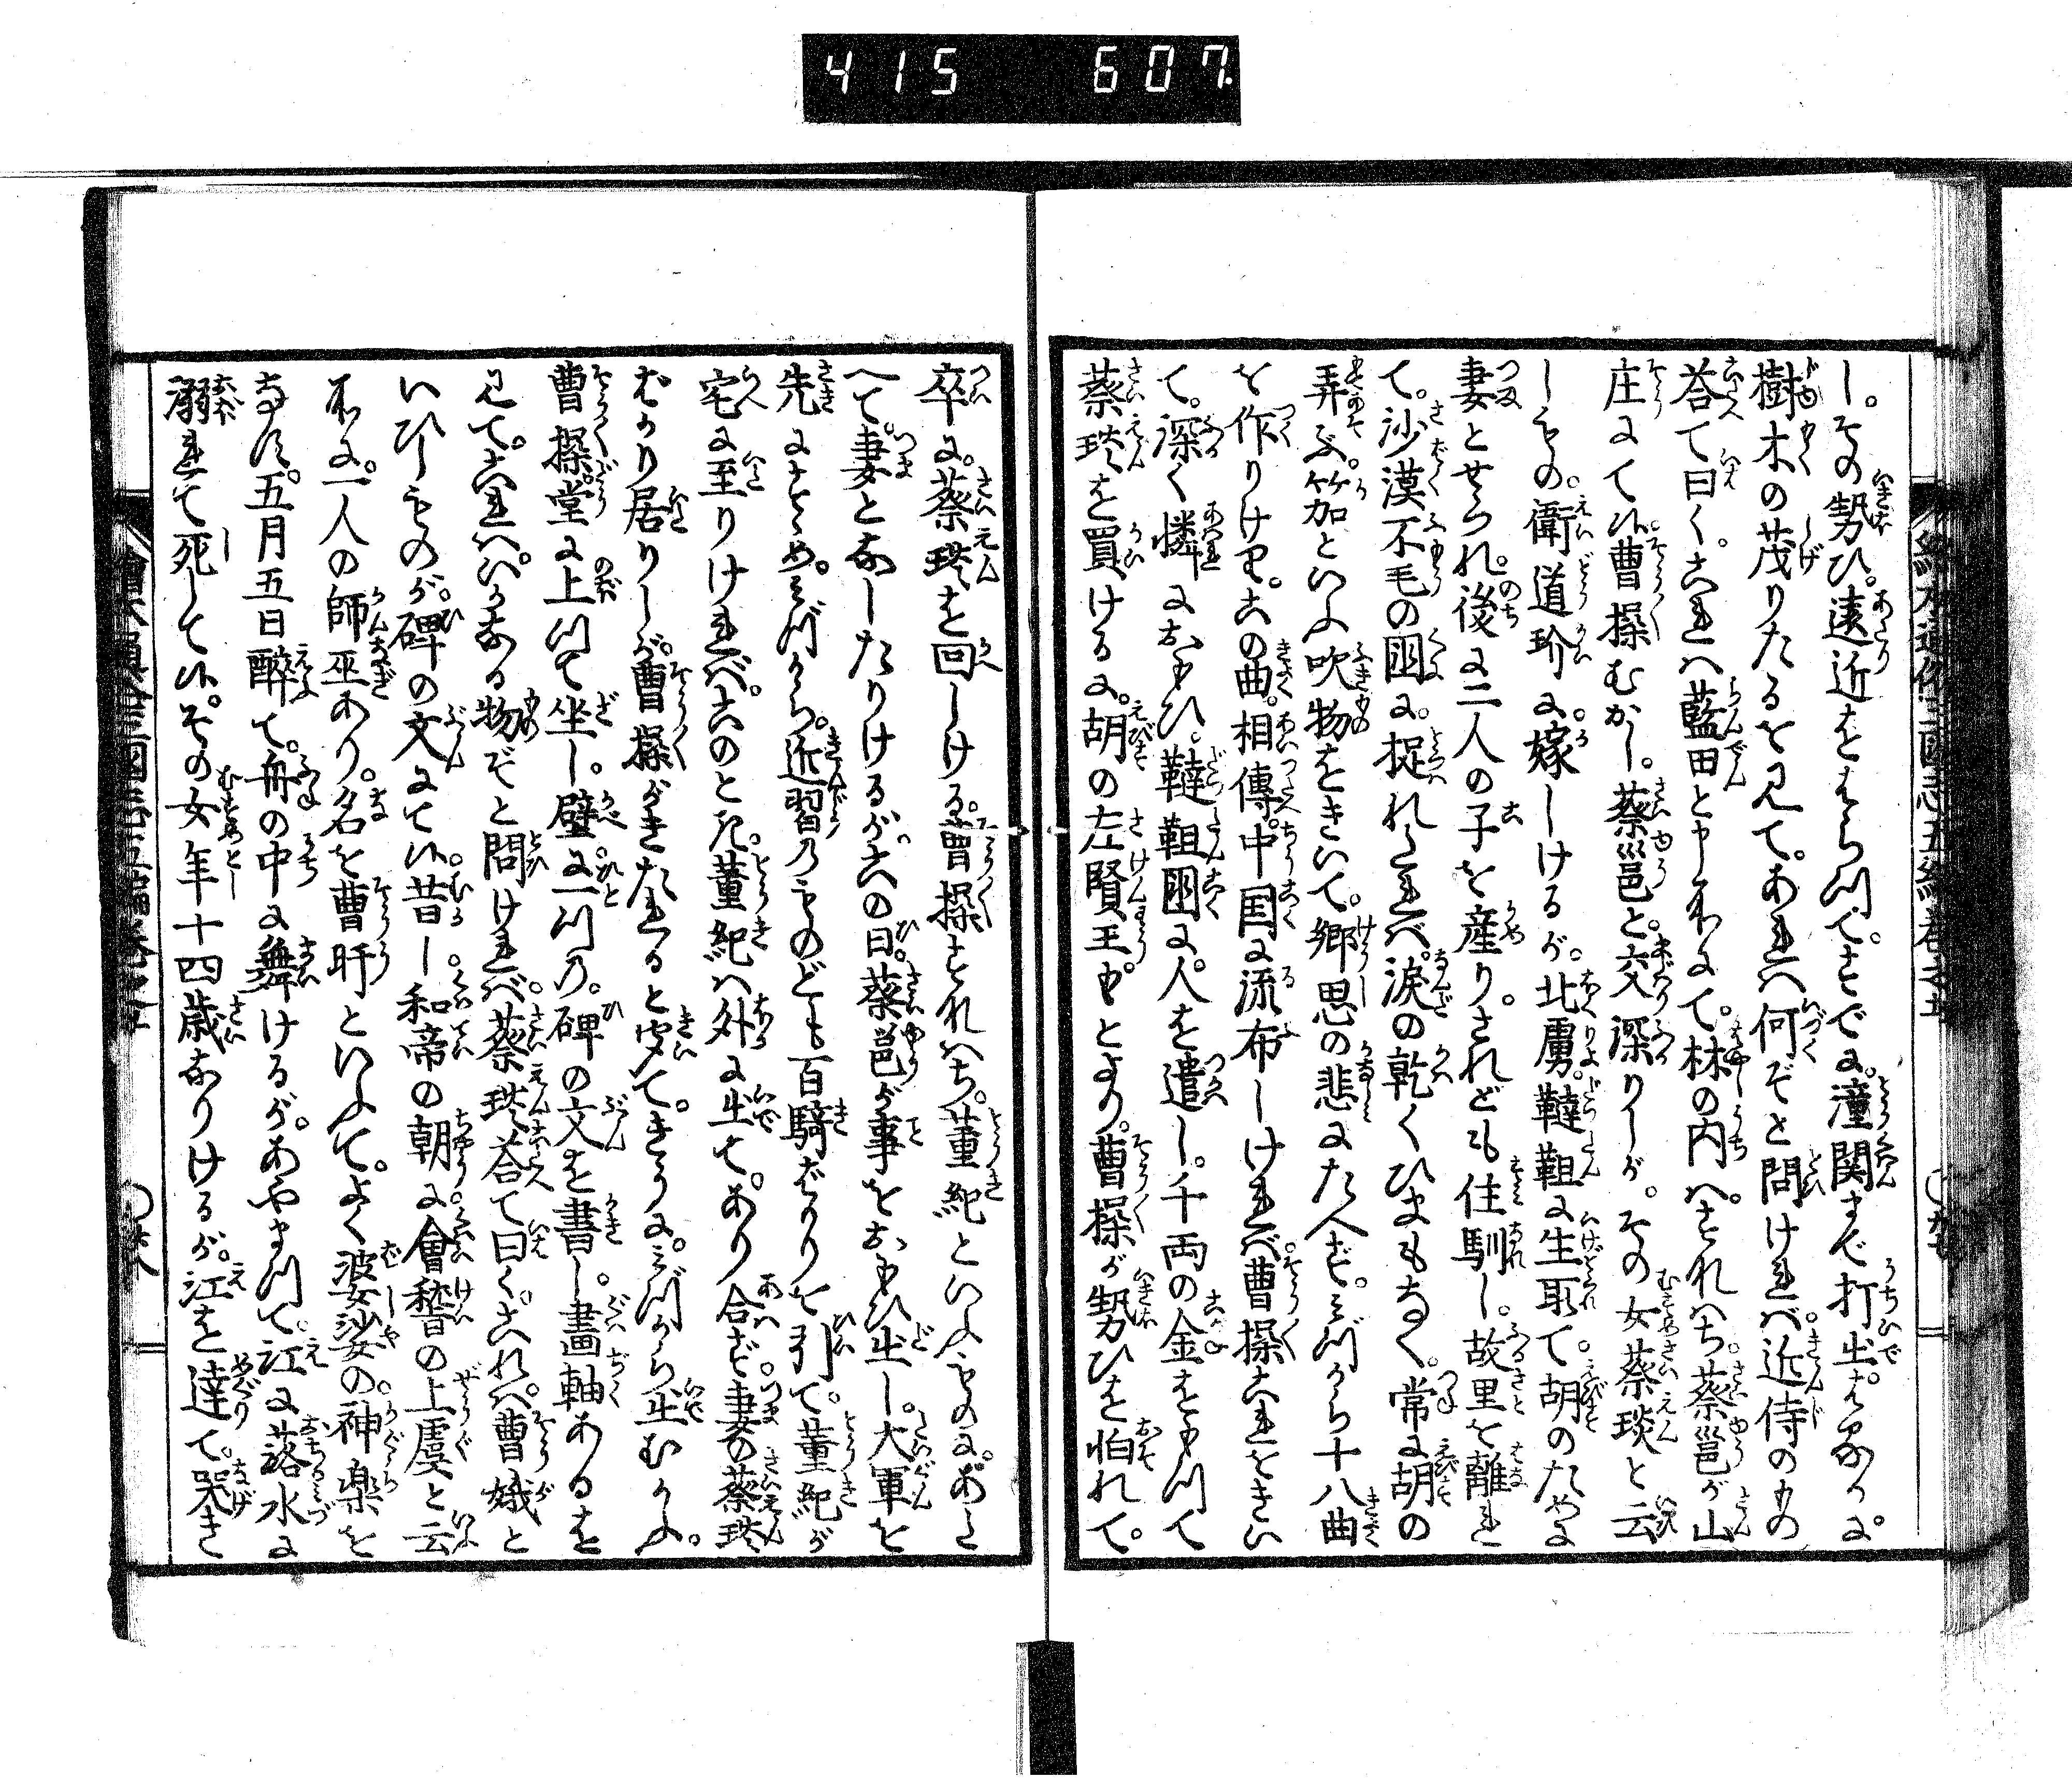 415 607
し。その勢ひ。遠近をはらつて。すでに。潼関まで打出。はるかに。
樹木の茂りたるを見て。あれハ何ぞと問けれバ。近侍のもの
荅て曰く。これハ藍田と申所にて。林の内ハ。すなハち。蔡邕が山
庄にて候。曹操むかし。蔡邕と。交深りしが。その女蔡琰と云
しもの。衛道玠に。嫁しけるが。北虜。韃靼に生取て。胡のために
妻とせられ。後に二人の子を産り。されども住馴し。故里を離れ
て。沙漠不毛の国に。捉れたれバ。涙の乾くひまもなく。常に胡の
弄ぶ。笳といふ吹物をきいて。郷思の悲にたへず。ミづから十八曲
を作りけり。この曲。相傳。中国に流布しけれバ。曹操これをきい
て。深く憐におもひ。韃靼国に。人を遣し。千両の金をもつて
蔡琰を買けるに。胡の左賢王も。とより。曹操が勢ひを怕れて。
卒に。蔡琰を回しける。曹操すなハち。董紀といふものに。あた
へて。妻となしたりけるが。この日。蔡邕が事をおもひ出し。大軍を
先にすゝめ。ミづから。近習のものども百騎ばかりを引て。董紀が
宅に至りけれバ。このとき。董紀ハ外に出て。あり合ず。妻の蔡琰
ばかり居りしが。曹操がきたれると聞て。きうに。ミづから出むかふ。
曹操堂に上つて坐し。壁に一つの。碑の文を書し。畫軸あるを
見て。これハ。いかなる物ぞと問けれバ。蔡琰荅て曰く。これハ。曹娥と
いひしものが。碑の文にて候。昔し。和帝の朝に。會稽の上虞と云
所に。一人の師巫あり。名を曹旰といふて。よく婆娑の。神楽を
なす。五月五日醉て。舟の中に舞けるが。あやまつて。江に落水に
溺れて死して候。その女年十四歳なりけるが。江を遶て。哭き